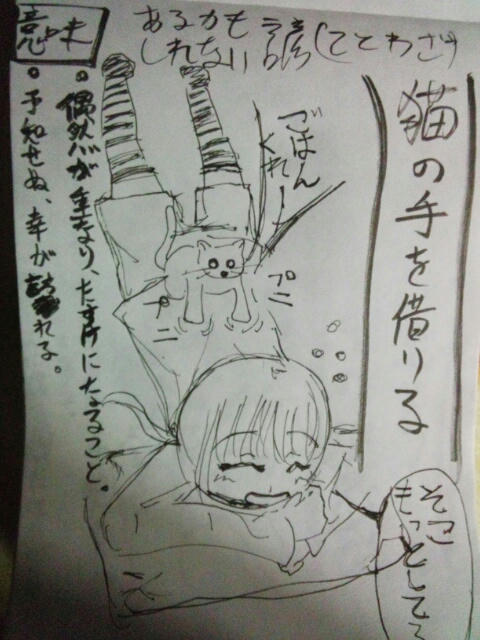 あるかも
しれない諺(ことわざ)
猫の手を借りる
ごはん
くれー
プニ
プニ
そこ
もっとしてて
意味
・偶然が重なり、たすけになること。
・予知せぬ、幸が訪れる。